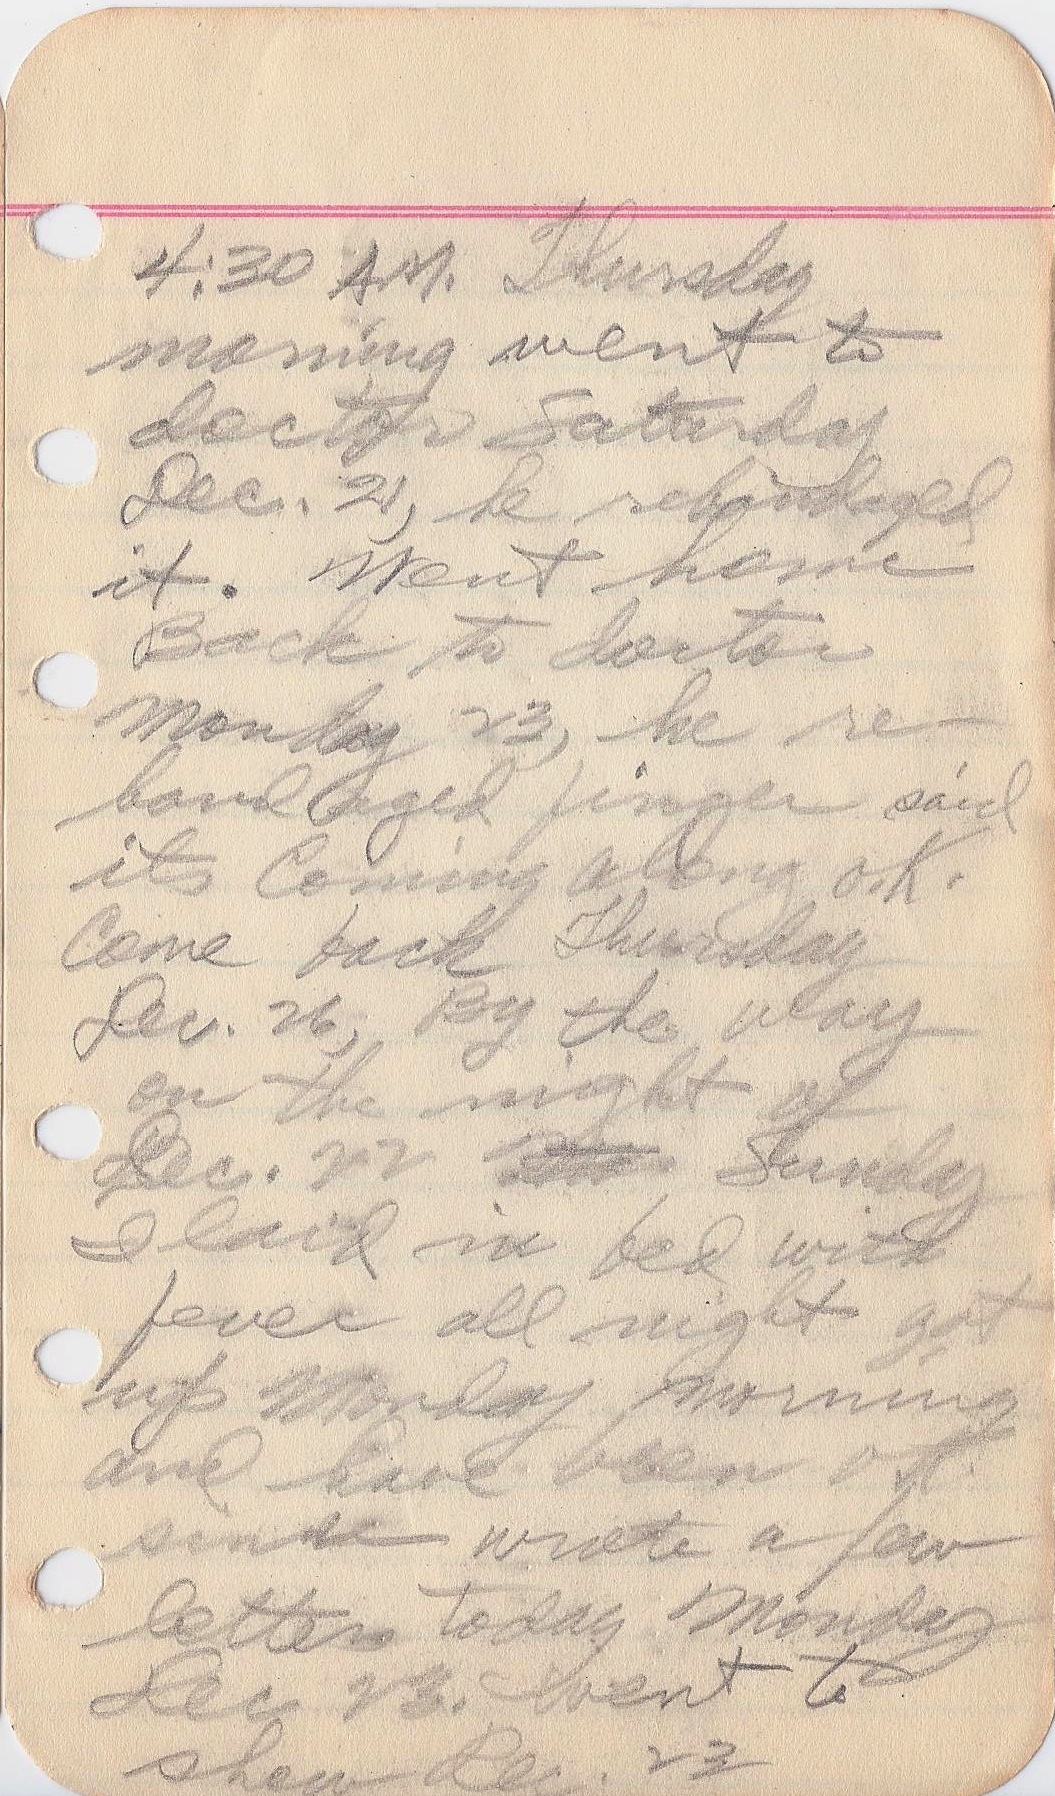 4:30 A.M. Thursday
morning went to
doctor Saturday
Dec. 21, he rebandaged
it. Went home
Back to doctor
Monday 23, he re-
bandaged finger said
its Coming along o.K.
Come back Thursday
Dec. 26, By the way
on the night of
Dec. 22 Sunday
I laid in bed with
fever all night got
up Monday morning
and have been o.K.
since wrote a few
letters today Monday
Dec 23. went to
show Dec. 23